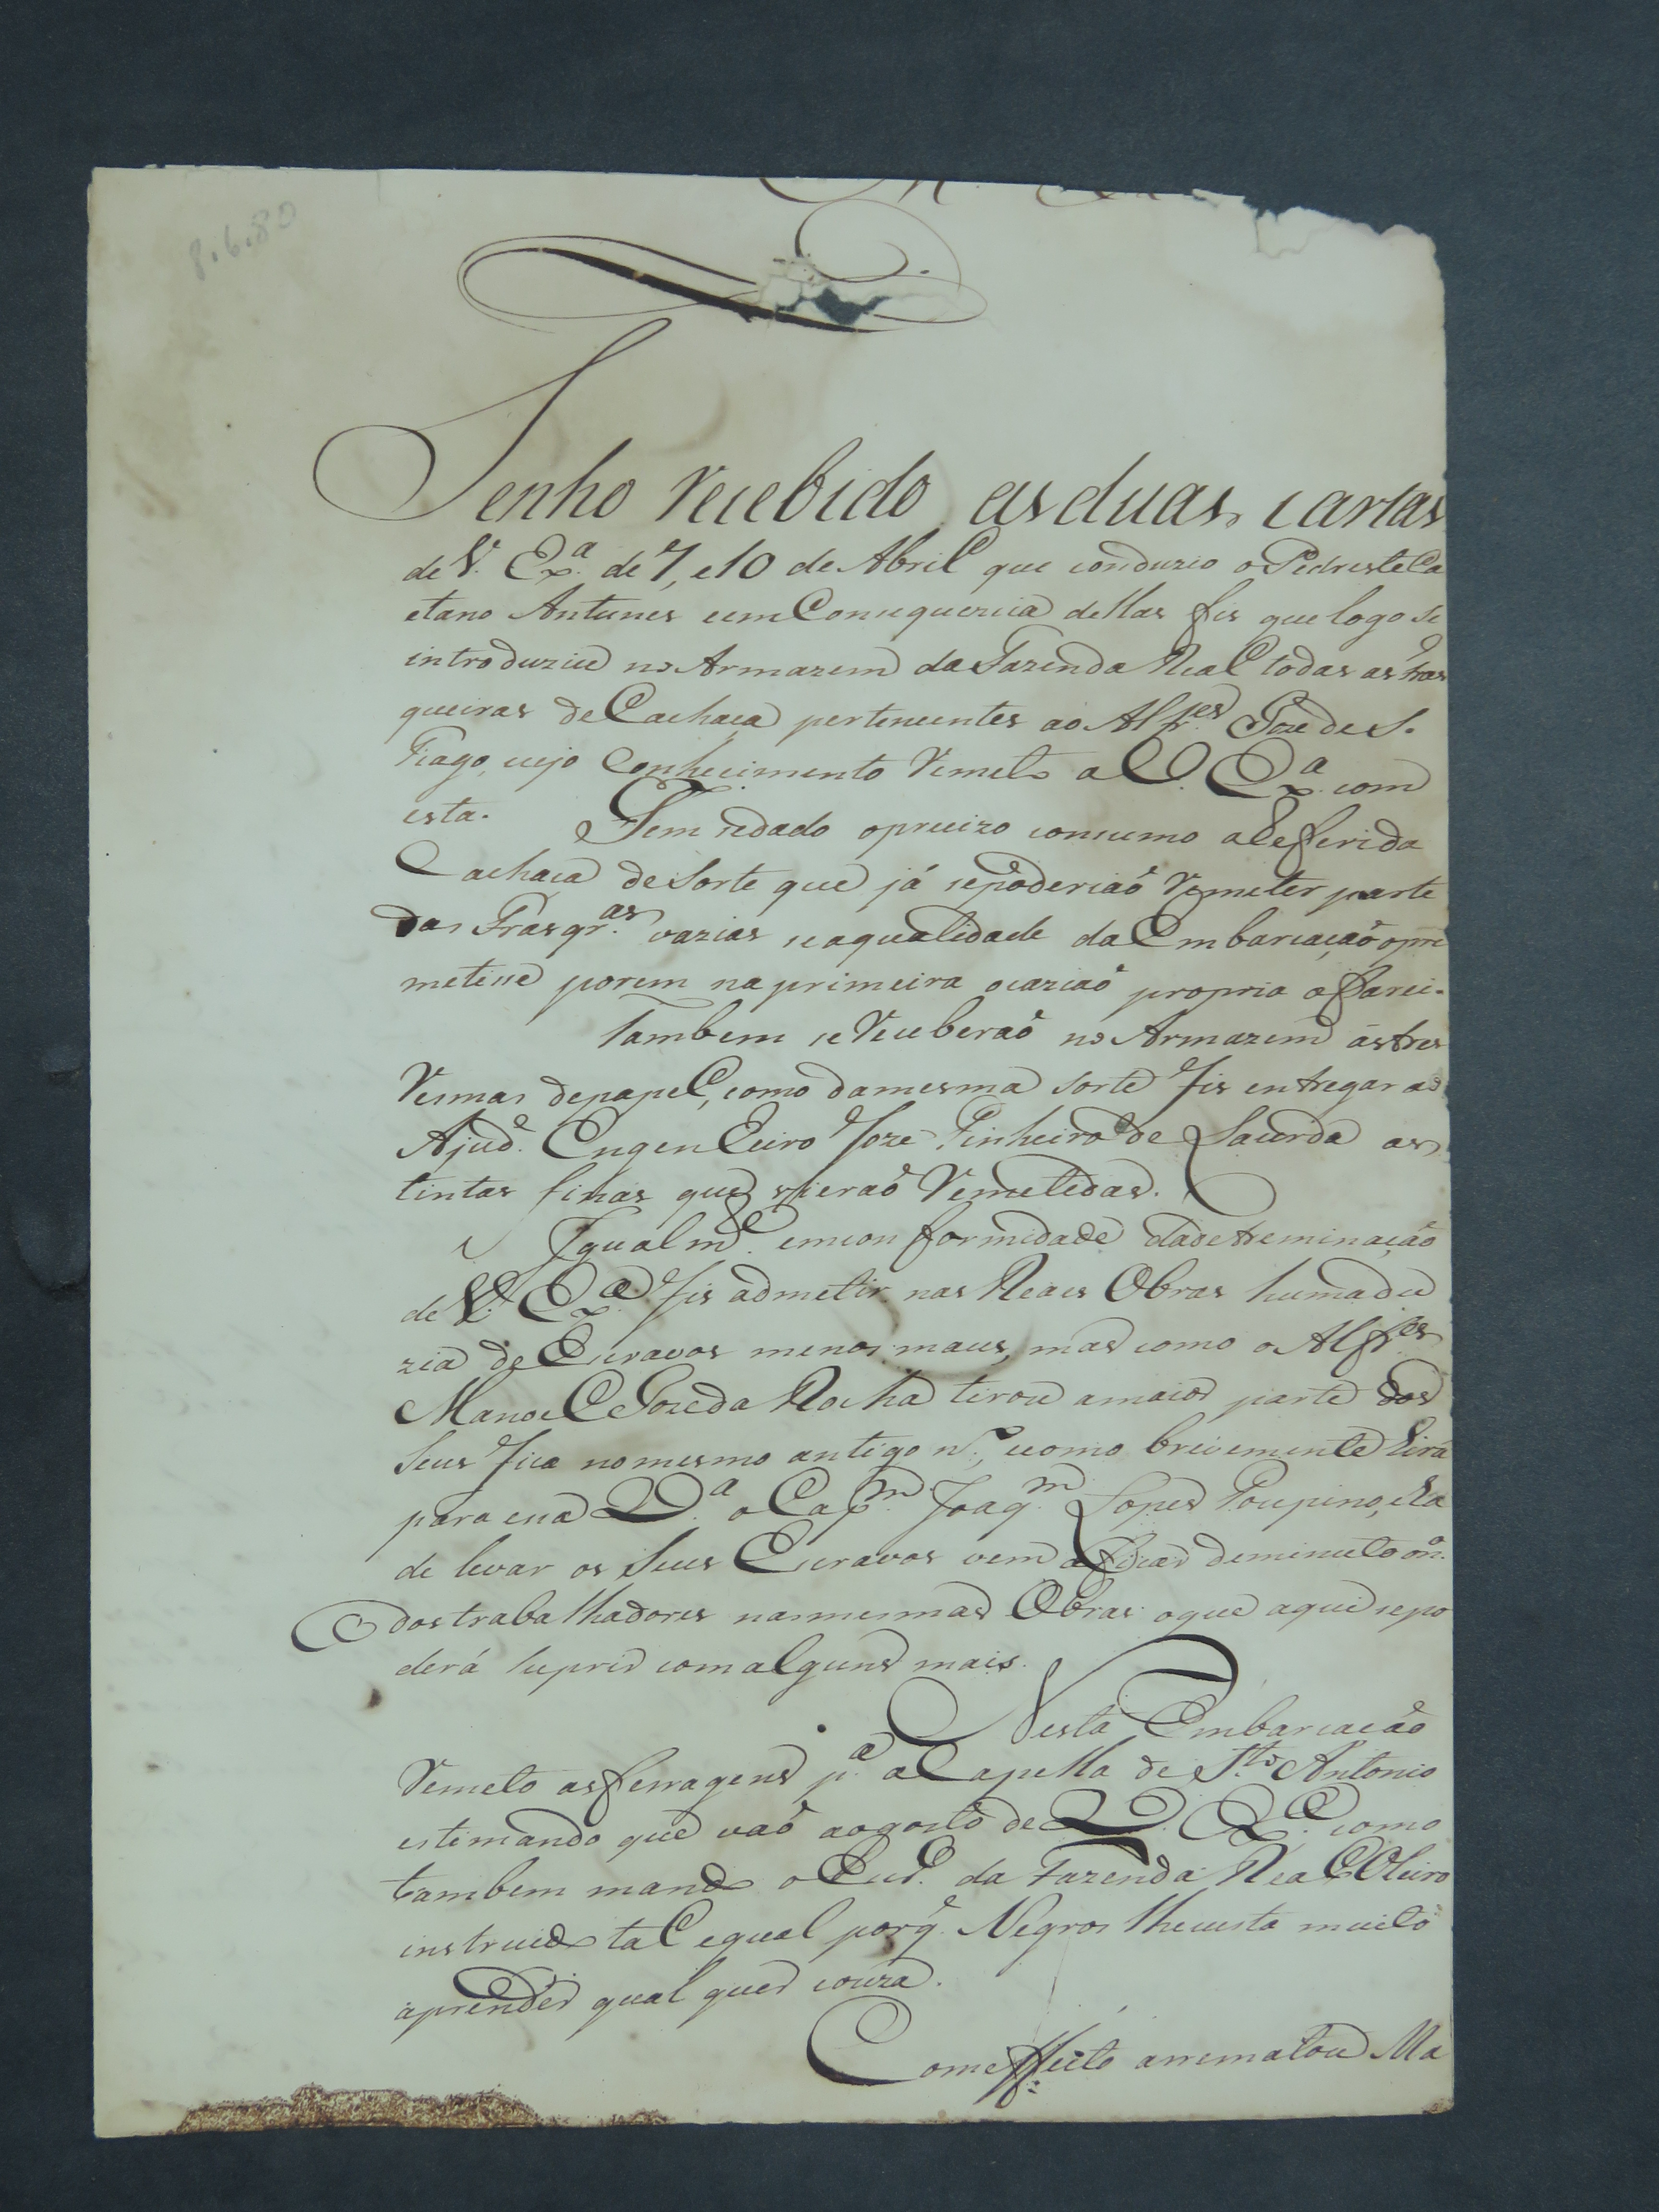 8.6.80
Tenho recebido as duas cartas
de V. Exª. de 7, e 10 de Abril que conduzio o Pedreste Ca
etano Antunes eem Consequencia dellas fis que logo se
introduziu no Armazem da Fazenda Real todas as fras
queiras de Cachaca pertencentes ao Alfes. Joze de S.
Tiago, cujo Conhecimento remeto a V. Exª. com
esta. Tem sedado o precizo consumo a Referida
Cachaca de sorte que já se poderiaõ remeter parte
das Frasqr.as vazias se a qualidade da Embarcaçaõ o pre
metisse porem na primeira ocaziaõ propria o farei.
Tambem se receberaõ no Armazem as tres
resmas de papel, como da mesma sorte fis entregar ao
Ajud.e Engenheiro Joze Pinheiro de Lacerda as
tintas finas que vieraõ remetidas.
Igualm.e emconformidade da detreminaçaõ
de V. Exª. fis admetir nas Reaes Obras huma du
zia de Escravos menos maus, mas como o Alfes
Manoel Joze da Rocha tirou a maior parte dos
seus fica no mesmo antigo n.º, e como brevemente hirá
para essa V.ª o Cap.m Joaq.m Lopes Poupino, e ha
de levar os seus Escravos vem a ficar deminuto o n.º
dos trabalhadores nas mesmas Obras o que aqui se po
derá suprir com alguns mais.
Nesta Embarcaçaõ
remeto as ferragens p.ª a Capella de S.to Antonio
estimando que vaõ ao gosto de V. Exª. como
tambem mando o da Fazenda Real Oleiro
instruido tal e qual porq.e Negros lhe custa muito
aprender qual quer couza.
Com effeito arrematou Ma